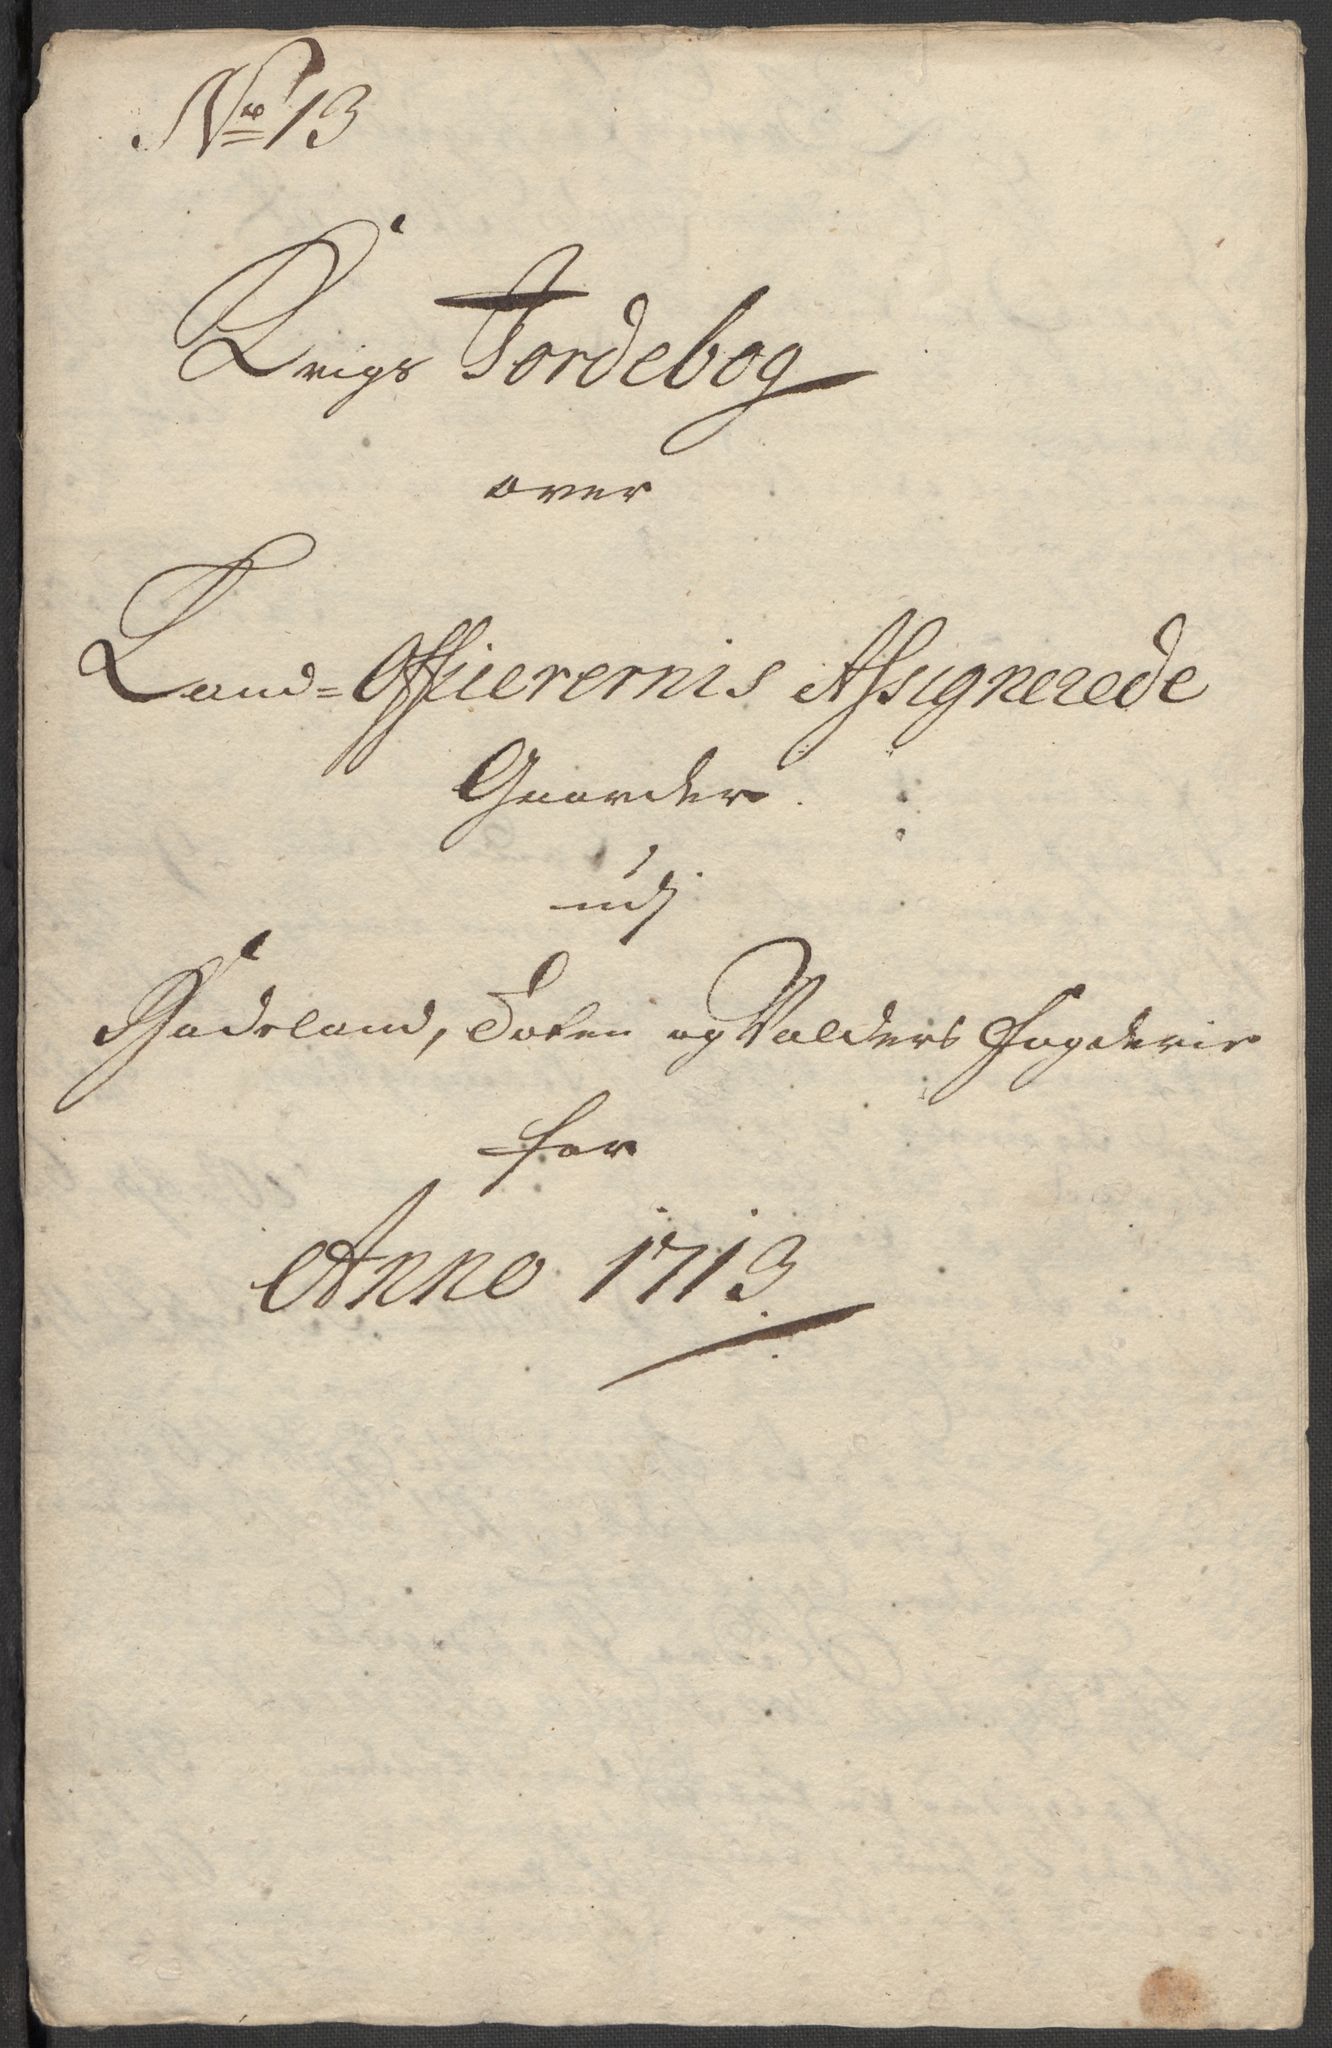 No 13
Krigs Jordebog
over
Land=Officerernis Assignerede
Gaarder
udj
Hadeland, Toten og Valders Fogderie
for
Anno 1713